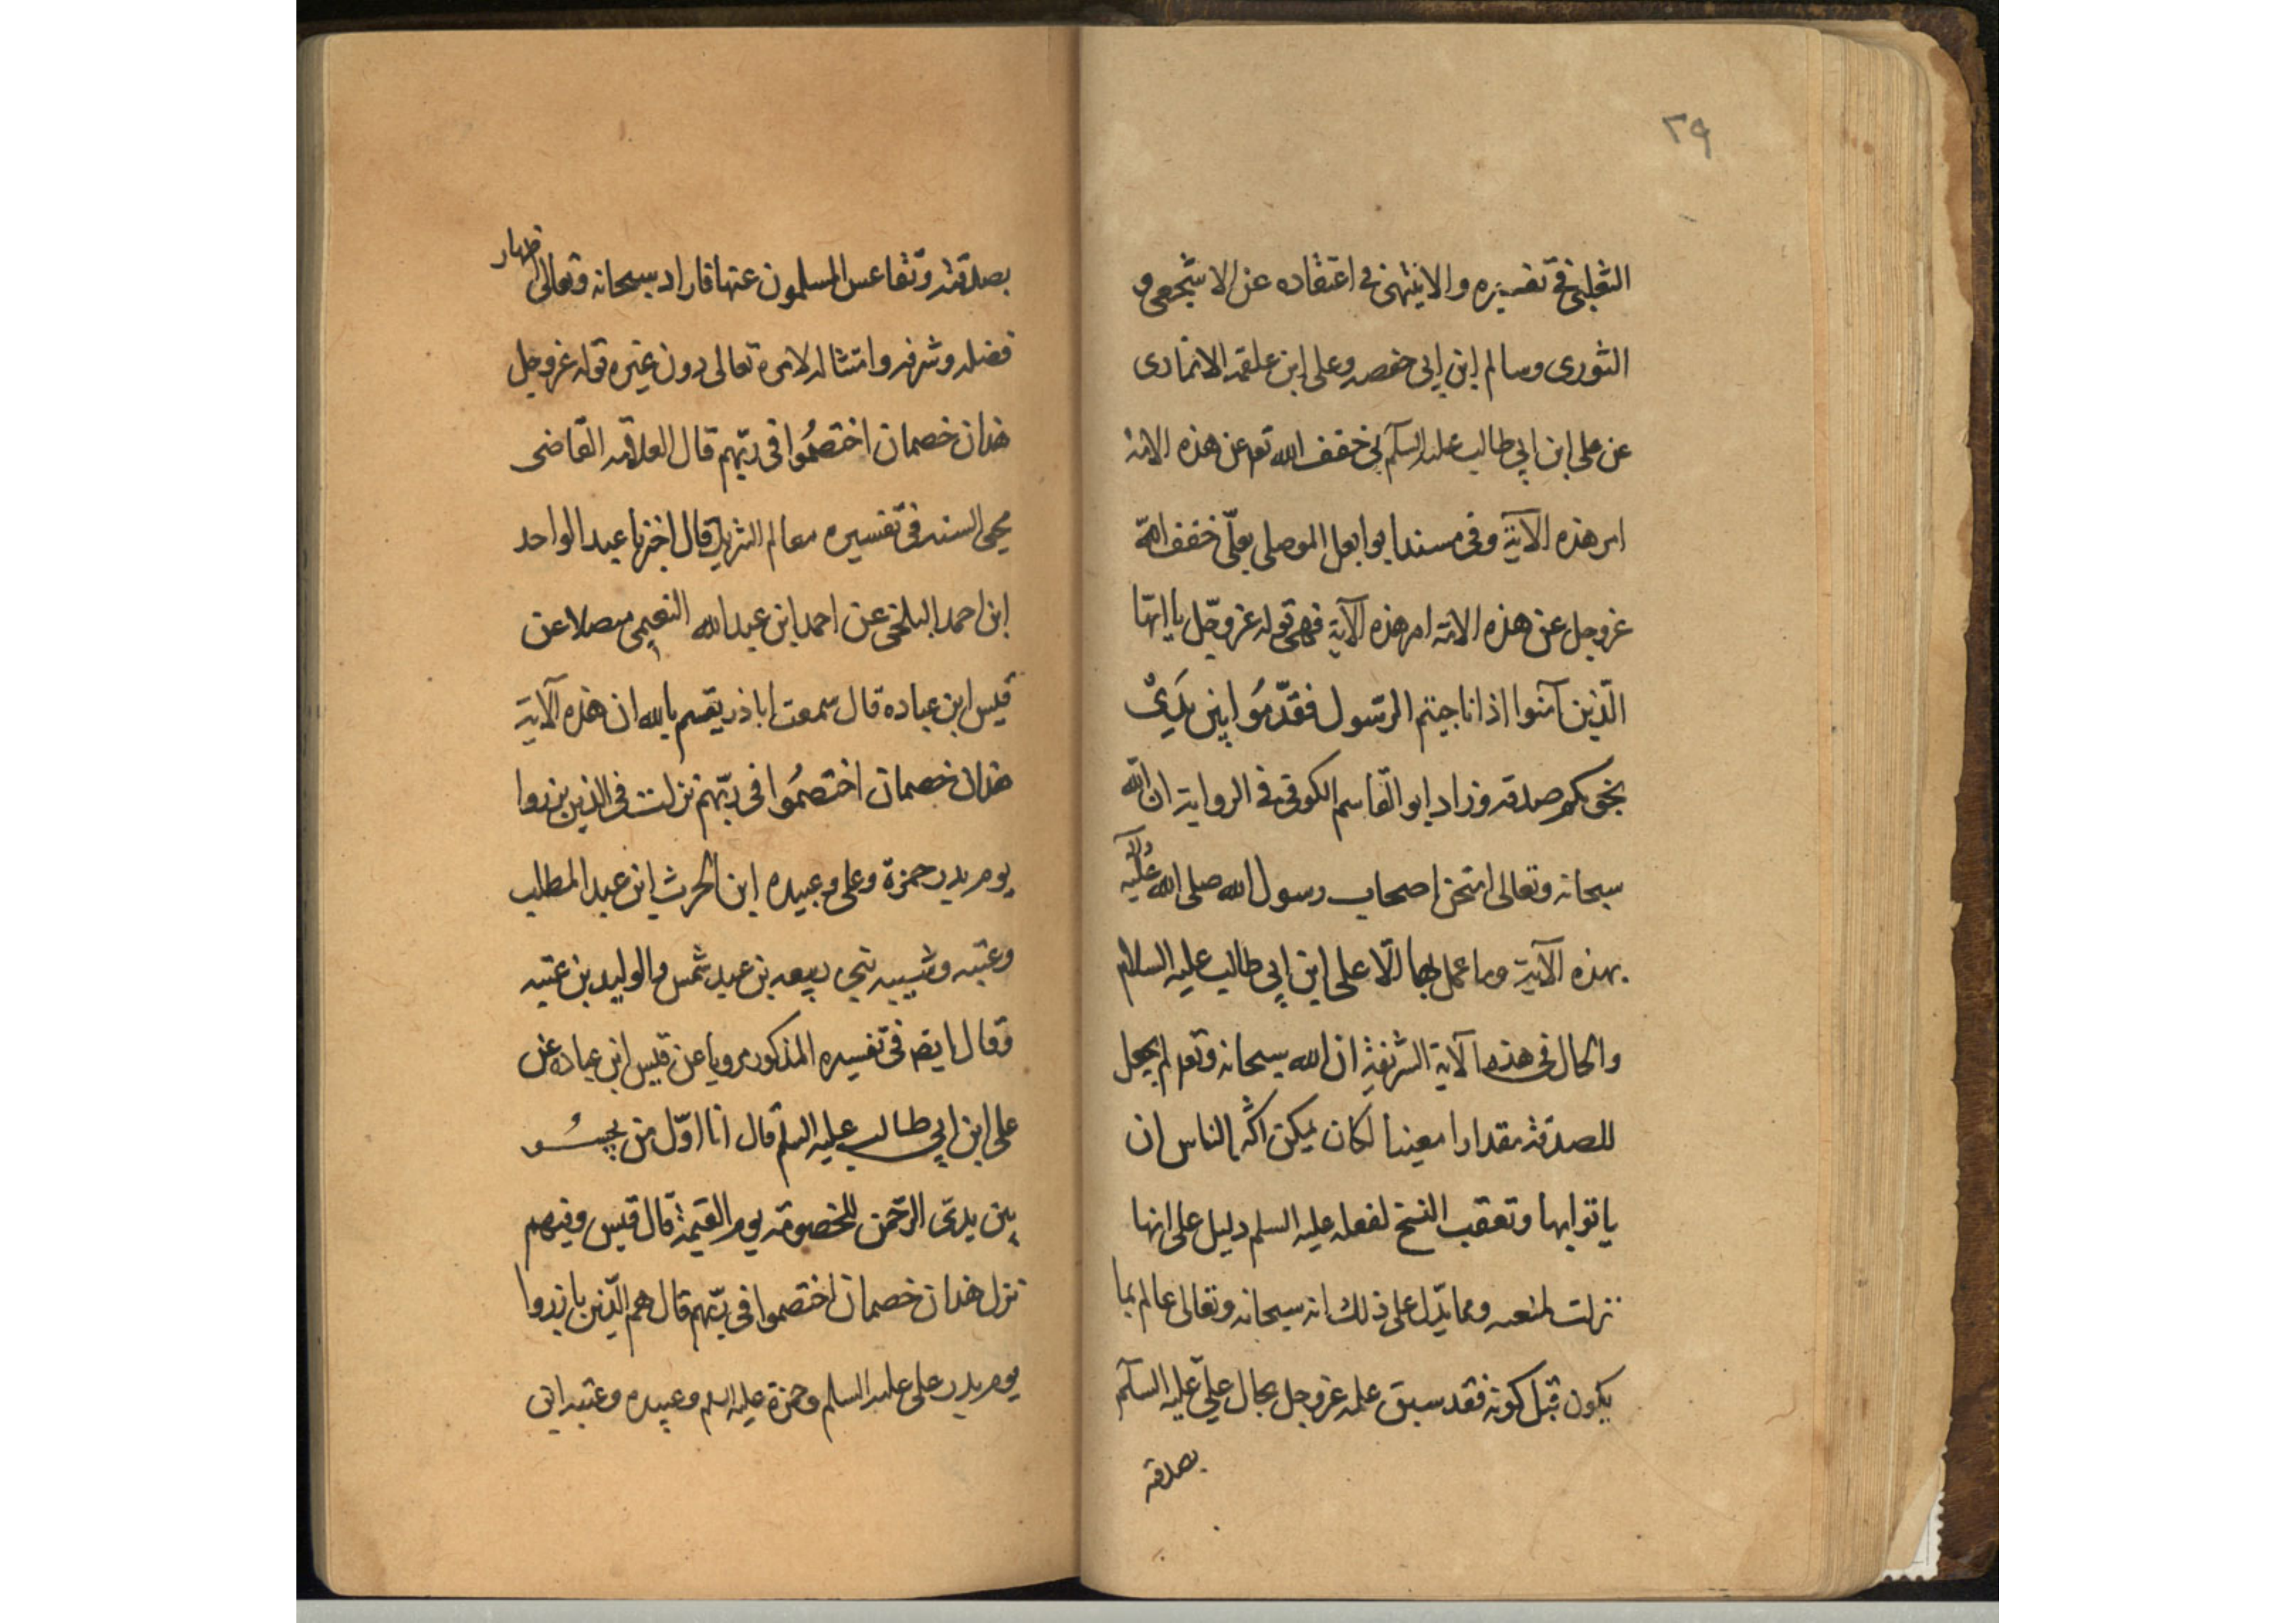 ٢٩
الثعلبى فى تفسيره والا ينتهى فى اعتقاده عن الاشجعى و
الثورى وسالم ابن ابى حفصه وعلى ابن علقمه الانمارى
عن على ابن ابي طالب عليه السلام بى خفف الله تعـ عن هذه الامة
امر هذه الآية وفى مسند ابو ابعل الموصلى بعلّى خفف الله
عزوجل عن هذه الامة امر هذه الآية فهى قوله عزوجّل يا ايّها
الّذين آمنوا اذا ناجيتم الرّسول فقدّمُوا بين يَدىْ
نجويكم صدقه وزاد ابو القاسم الكوفى فى الرواية ان الله
سبحانه وتعالى امتحن اصحاب رسول الله صلى الله عليه وآله
بهذه الآية وما عمل بها الّا على ابن ابي طالب عليه السلام
والحال فى هذه الآية الشريفة ان الله سبحانه وتعـ لم يجعل
للصدقة مقدارا معينا لكان يمكن اكثر الناس ان
ياتوا بها وتعقب النسخ لفعله عليه السلم دليل على انها
نزلت لمنعه ومما يدّل على ذلك انه سبحانه وتعالى عالم بما
يكون قبل كونه فقد سبق علمه عزوجل بحال علىّ عليه السلام
بصدقه
بصدقته وتقاعس المسلمون عنها فاراد سبحانه وتعالى اظهار
فضله وشرفه وامتثاله لامره تعالى دون غيره قوله عزوجل
هذان خصمان اختصمُوا فى ربّهم قال العلامه القاضى
محيى السنه فى تفسيره معالم التنزيل قال اخبرنا عبد الواحد
ابن احمد البلخى عن احمد ابن عبد الله النعيمى متصلا عن
قيس ابن عباده قال سمعت اباذر يقسم بالله ان هذه الآية
هذان خصمان اختصمُوا فى ربّهم نزلت فى الذين برزوا
يوم بدر حمزة وعلى وعبيده ابن الحرث ابن عبد المطلب
وعتبه وشيبه بنى ربيعه بن عبد شمس والوليد بن عتبه
وقال ايضـ فى تفسيره المذكور مرويا عن قيس ابن عباده عن
على ابن ابي طالب عليه السلم قال انا اوّل من يجثـو
بين يدى الرّحمن للخصومة يوم القيمة قال قيس وفيهم
نزل هذان خصمان اختصموا فى ربّهم قال هم الّذين بارزوا
يوم بدر على عليه السلم وحمزة عليه السلم وعبيده وعتبه ابن